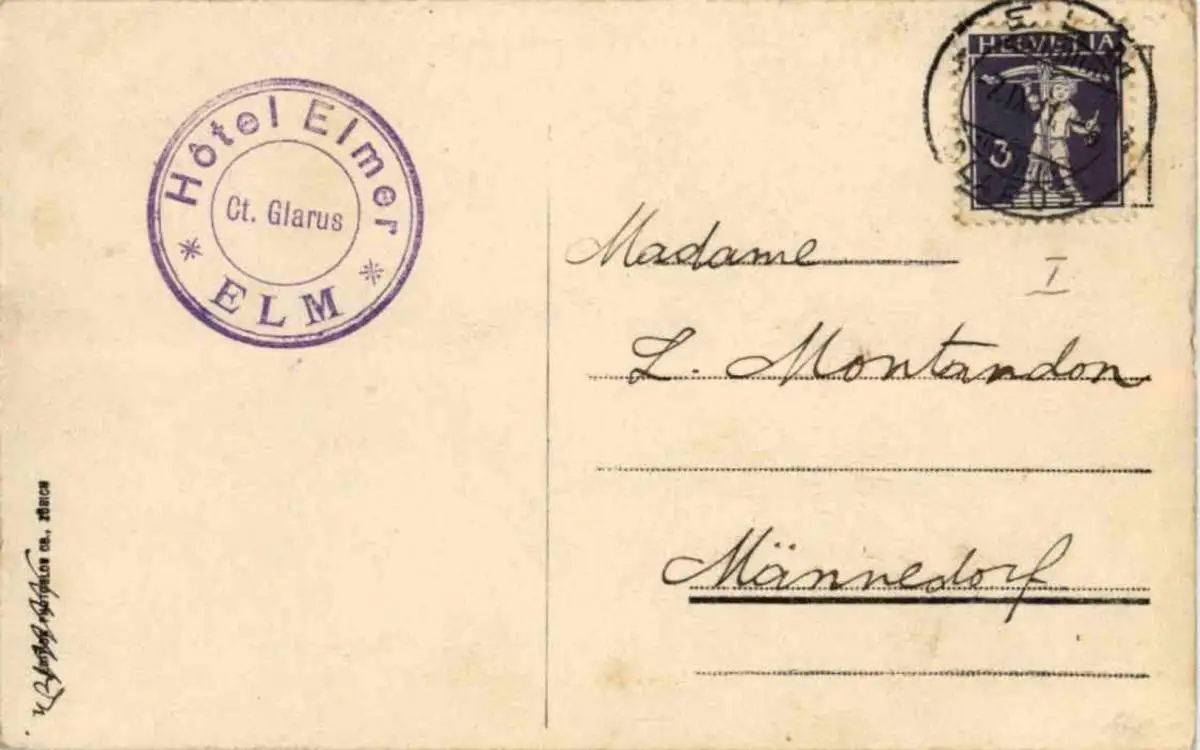 Hôtel Elmer
Ct. Glarus
ELM
HELVETIA
3
Madame
I
L. Montandon
Männedorf
CO., ZÜRICH